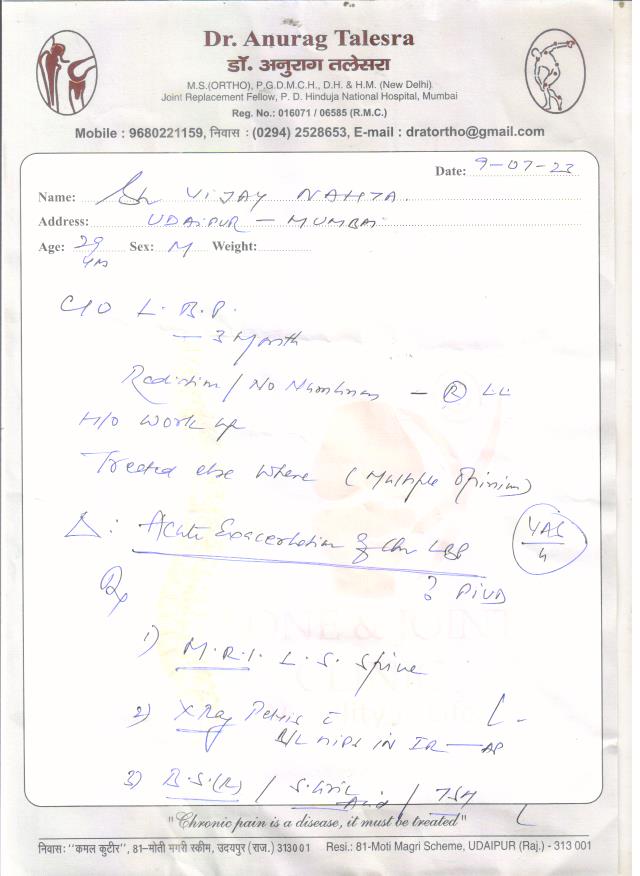 Dr. Anurag Talesra
डॉ. अनुराग तलेसरा
M.S.(ORTHO), P.G.D.M.C.H., D.H. & H.M. (New Delhi)
Joint Replacement Fellow, P. D. Hinduja National Hospital, Mumbai
Reg. No.: 016071 / 06585 (R.M.C.)
Mobile : 9680221159, निवास : (0294) 2528653, E-mail : dratortho@gmail.com
Date: 9-07-23
Name: Sh VIJAY NAHTA
Address: UDAIPUR - MUMBAI
Age: 29 Sex: M Weight:
Yrs
C/O L.B.P.
- 3 Month
Radiation / No Numbness - (R) LL
H/o Work up
Treated else where (Multiple Opinion)
Δ: Acute Exacerbation of Chr LBP
VAS
4
? PIVD
Rx
1) M.R.I. L.S. Spine
2) X Ray Pelvis c̄
B/L HIPS IN IR - AP
3) B.S.(R) / S. Uric Acid / TSH
BONE & JOINT
"Chronic pain is a disease, it must be treated"
निवास: "कमल कुटीर", 81-मोती मगरी स्कीम, उदयपुर (राज.) 313001 Resi.: 81-Moti Magri Scheme, UDAIPUR (Raj.) - 313 001